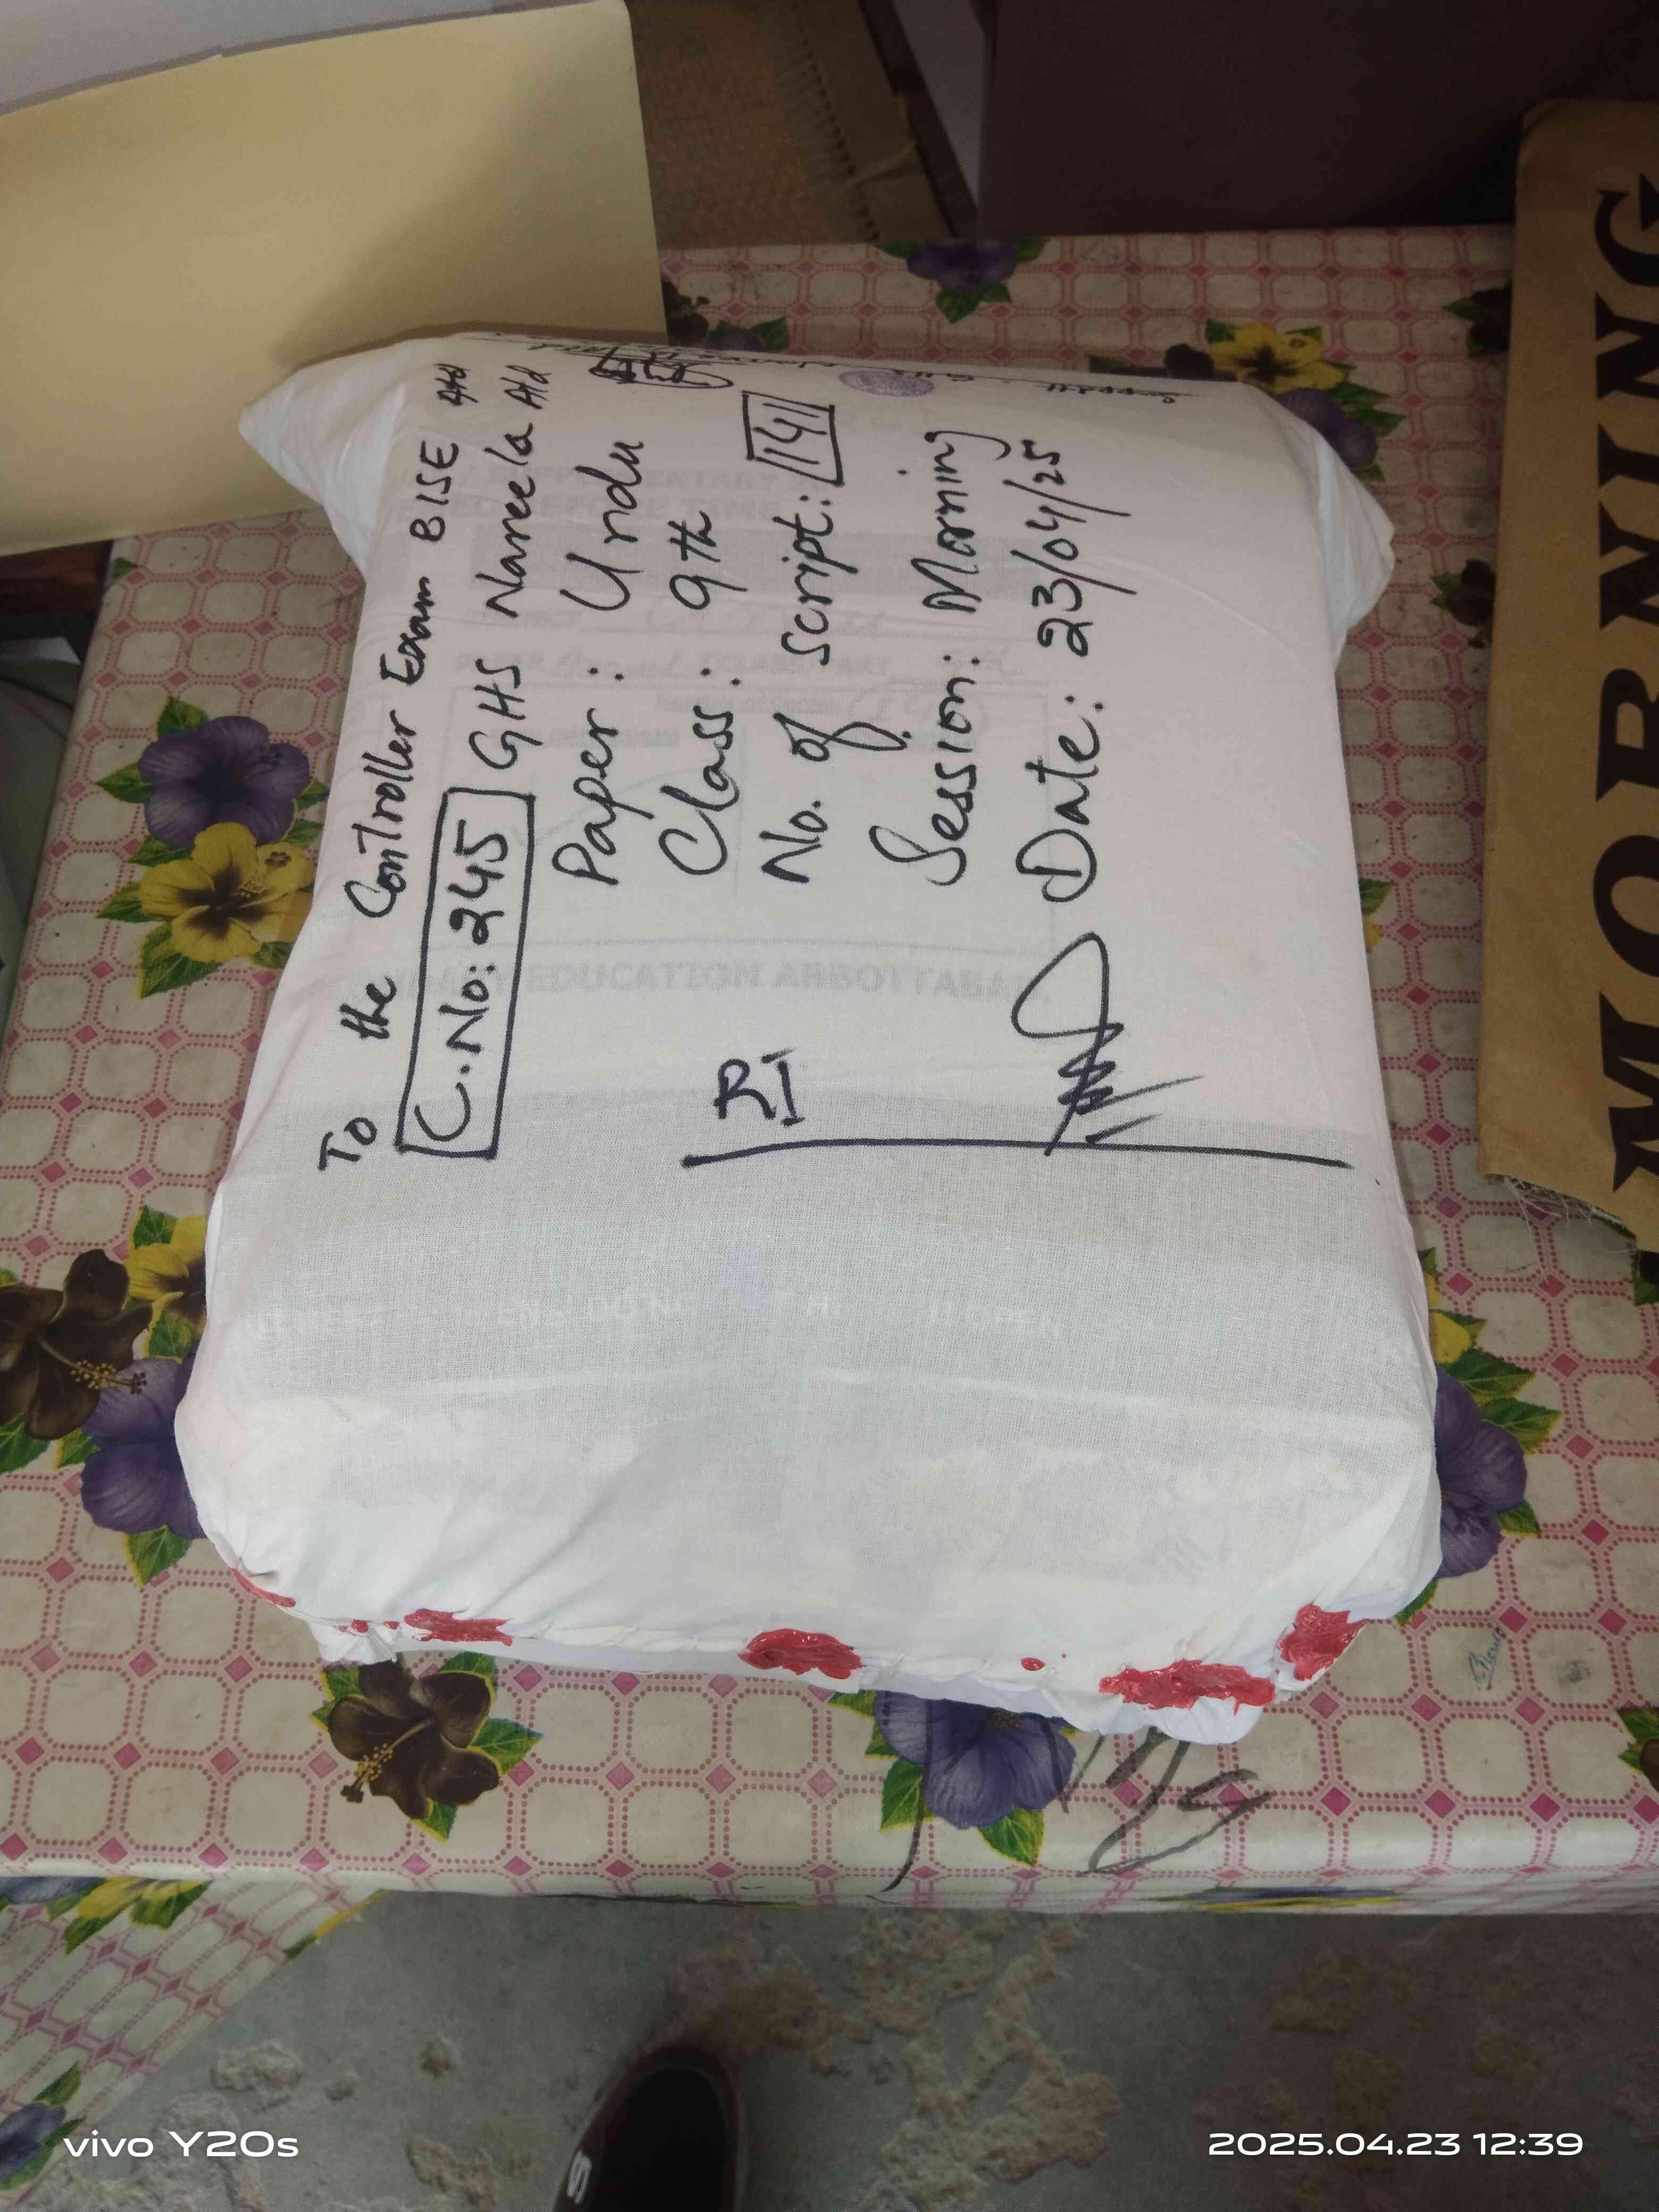 To the Controller Exam BISE Atd
C.No: 245 GHS Nareela Atd
Paper: Urdu
Class: 9th
No. of script: 141
Session: Morning
Date: 23/04/25
RI
EDUCATION ABBOTTABAD
MORNING
vivo Y20s
2025.04.23 12:39